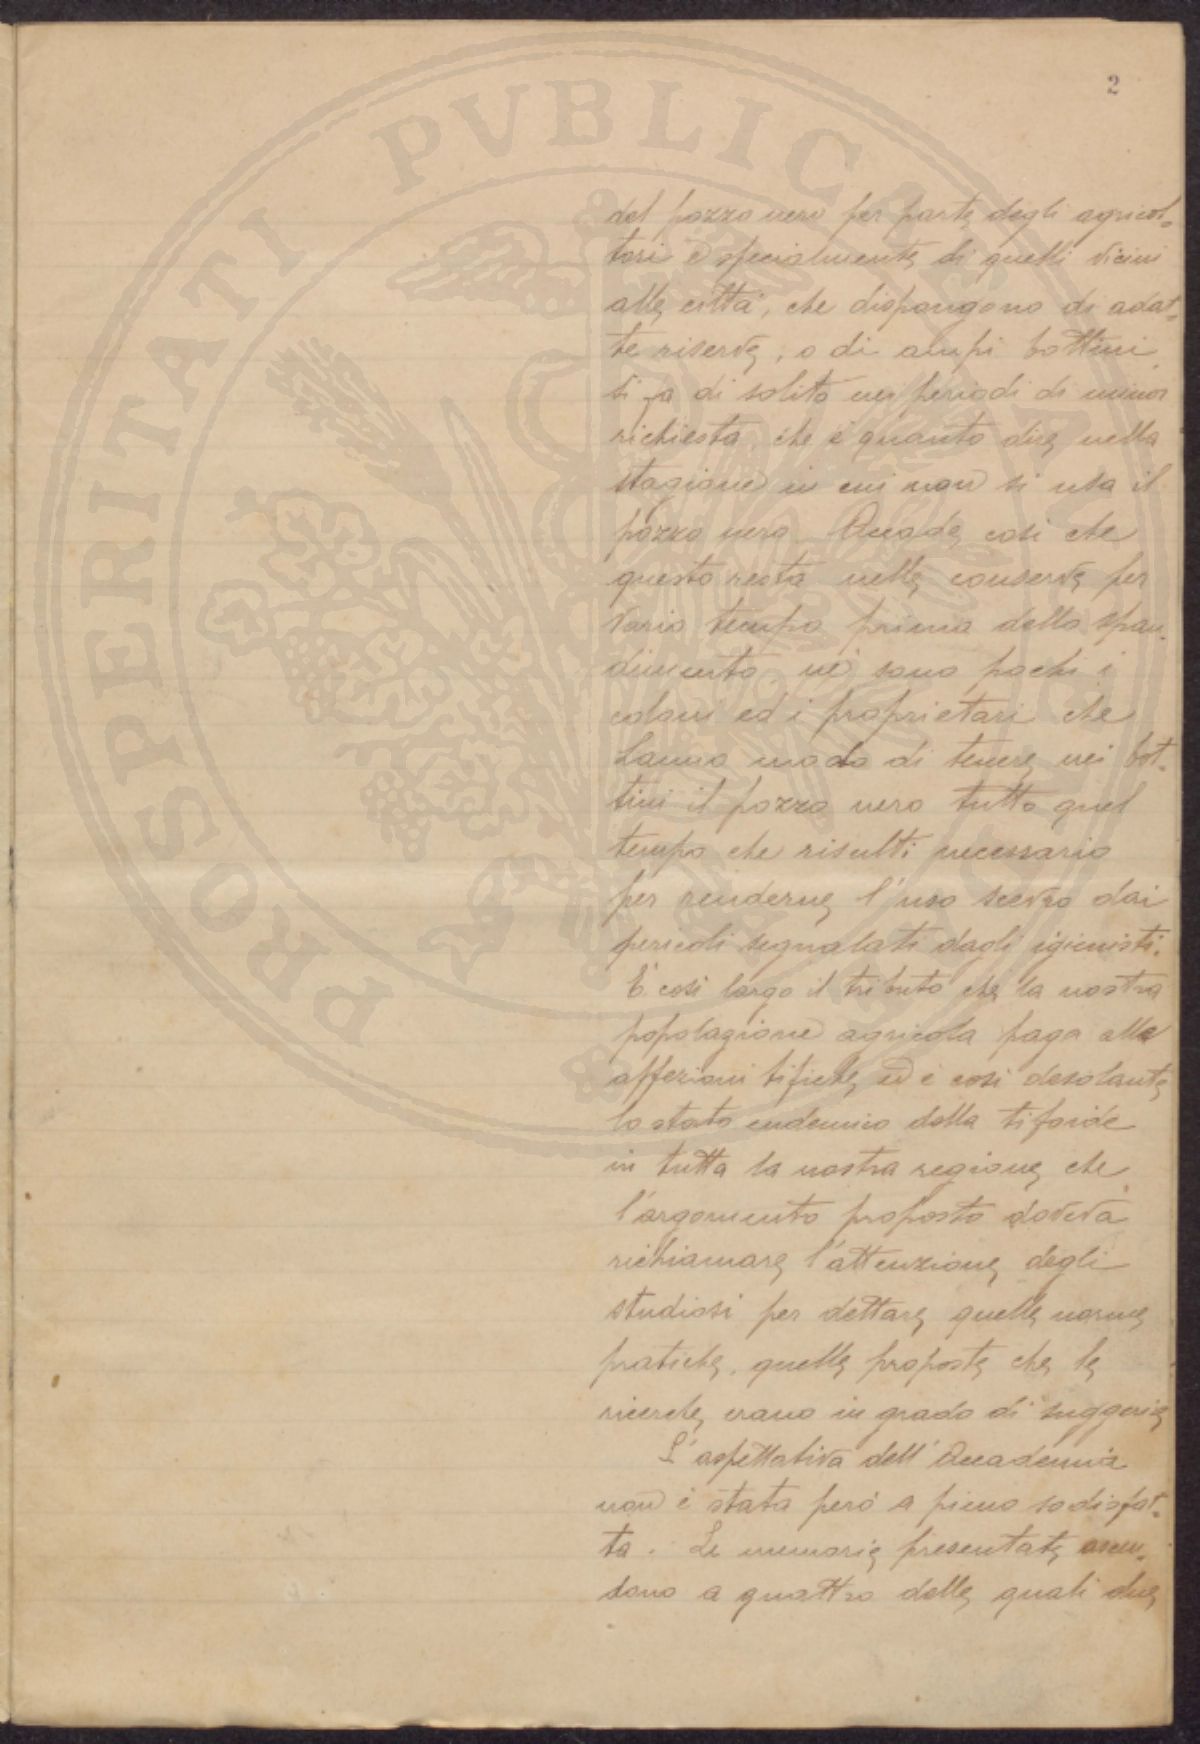 2
PROSPERITATI PVBLICAE
del pozzo nero per parte degli agricol-
tori e specialmente di quelli vicini
alle città, che dispongono di adat-
te riserve, o di ampi bottini
si fa di solito nei periodi di minor
richiesta, che è quanto dire nella
stagione in cui non si usa il
pozzo nero. Accade così che
questo resta nelle conserve per
vario tempo prima dello span-
dimento, nè sono pochi i
coloni ed i proprietari che
hanno modo di tenere nei bot-
tini il pozzo nero tutto quel
tempo che risulti necessario
per renderne l'uso scevro dai
pericoli segnalati dagli igienisti.
E' così largo il tributo che la nostra
popolazione agricola paga alle
affezioni tifiche, ed è così desolante
lo stato endemico della tifoide
in tutta la nostra regione, che
l'argomento proposto doveva
richiamare l'attenzione degli
studiosi per dettare quelle norme
pratiche, quelle proposte che le
ricerche erano in grado di suggerire
L'aspettativa dell'Accademia
non è stata però a pieno sodisfat-
ta. Le memorie presentate ascen-
dono a quattro delle quali due